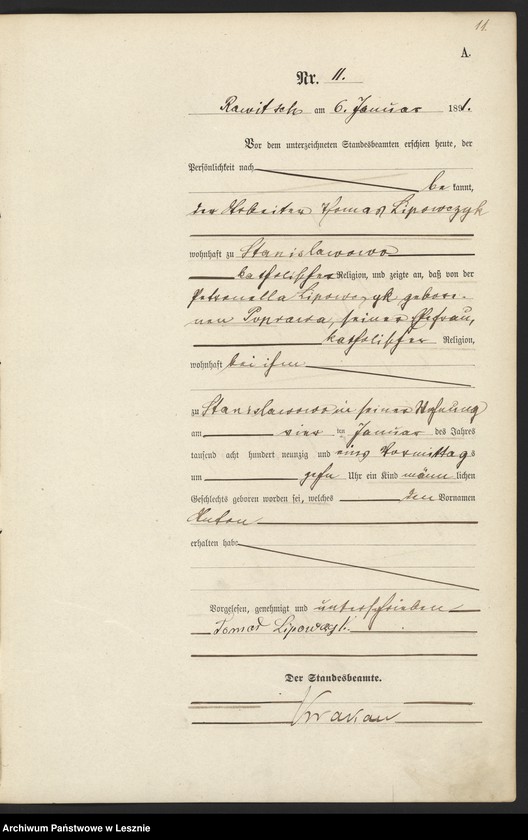 11.
A.
Nr. 11.
Rawitsch am 6. Januar 1891.
Vor dem unterzeichneten Standesbeamten erschien heute, der
Persönlichkeit nach
be kannt,
der Arbeiter Thomas Lipowczyk
wohnhaft zu Stanislawowo
katholischer Religion, und zeigte an, daß von der
Petronella Lipowczyk gebore-
nen Poprawa, seiner Ehefrau,
katholischer Religion,
wohnhaft bei ihm
zu Stanislawowo in seiner Wohnung
am vier ten Januar des Jahres
tausend acht hundert neunzig und eins Vormittags
um zehn Uhr ein Kind männ lichen
Geschlechts geboren worden sei, welches den Vornamen
Anton
erhalten habe
Vorgelesen, genehmigt und unterschrieben
Tomas
Der Standesbeamte.
Archiwum Państwowe w Lesznie